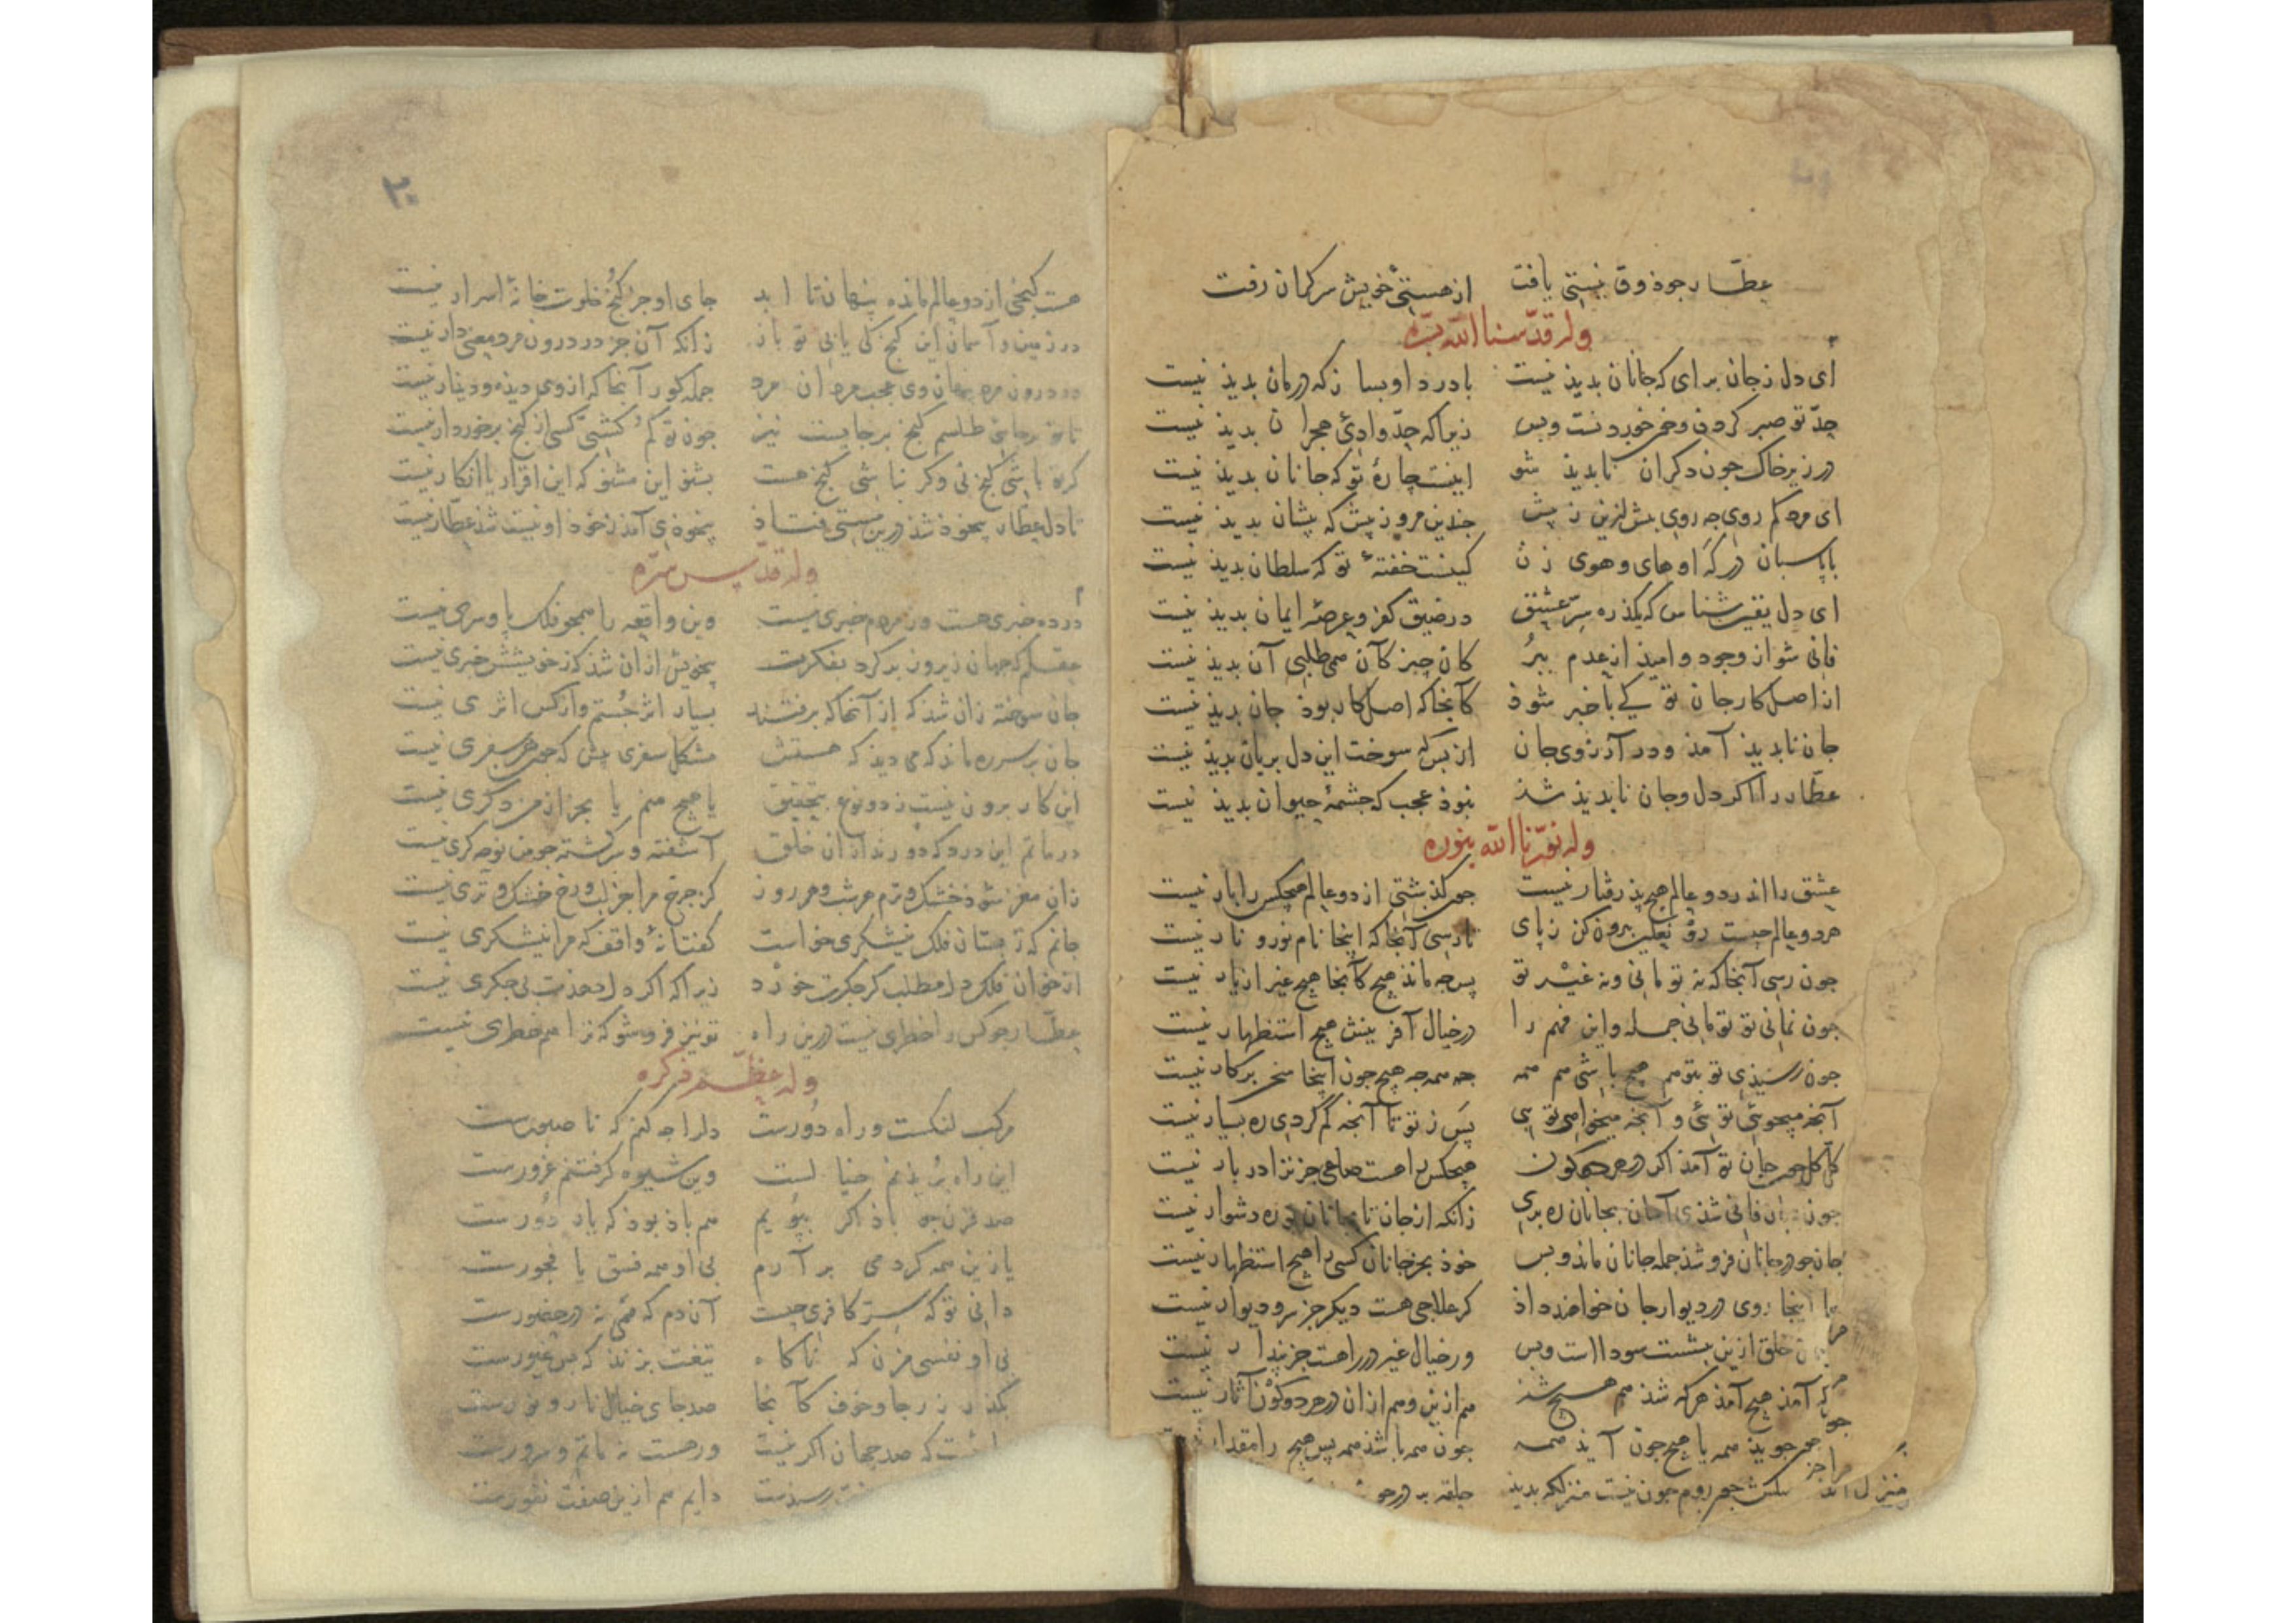 عطّار جوذ وق نیستی یافت از هستئ خویش سرکران رفت
وله قدّسنا الله بسرّه
ای دل ز جان برای که جانان بدیذ نیست با درد او بسا ز که درمان بدیذ نیست
جدّ تو صبر کردن و خون خوردنست وبس زیراکه جدّ وادئ هجران بدیذ نیست
در زیر خاک جون دکران نابدیذ شو اینست جارهٔ تو که جانان بدیذ نیست
ای مرد کم روی جه روی بیش ازین ز پیش جندین مرو ز پیش که پیشان بدیذ نیست
با پاسبان درکه او های وهوی زن کینست خفتهٔ تو که سلطان بدیذ نیست
ای دل یقین شناس که یکذره سرّ عشق در ضیق کفر وعرصهٔ ایمان بدیذ نیست
فانی شو از وجود و امیذ از عدم ببُر کان جیز کآن همی طلبی آن بدیذ نیست
از اصل کار جان تو کی با خبر شوذ کآنجا که اصل کار بوذ جان بدیذ نیست
جان نابدیذ آمذ ودر آرزوی جان از بس که سوخت این دل بریان بدیذ نیست
عطّار را اکر دل وجان نابدیذ شذ نبوذ عجب که جشمهٔ حیوان بدیذ نیست
وله نوّرنا الله بنوره
عشق را اندر دو عالم هیج پذرفتار نیست جون کذشتی از دو عالم هیچکس را بار نیست
هر دو عالم جیست رو نعلین بیرون کن ز پای تا رسی آنجا که اینجا نام نور و نار نیست
جون رسی آنجا که نه تو مانی ونه غیر تو پس جه ماند هیج کآنجا هیج غیر از یار نیست
جون نمانی تو تو مانی جمله واین فهم را در خیال آفرینش هیج استظهار نیست
جون رسیذی تو بتو هم هیج باشی هم همه جه همه جه هیج جون اینجا سخن برکار نیست
آنجه میجوئی توئی و آنجه میخواهی توی پس ز تو تا آنجه کم کردی ره بسیار نیست
کلّ کل جون جان تو آمذ اکر در هر دو کون هیچکس را هست صاحی جز ترا دربار نیست
جون بجان فانی شذی آسان بجانان ره بری زانکه از جان تا بجانان تو ره دشوار نیست
جان جو در جانان فرو شذ جمله جانان ماند و بس خوذ بجز جانان کسی را هیج استظهار نیست
اینجا روی در دیوار جان خواهند داذ کر علاجی هست دیکر جز سر و دیوار نیست
خلق ازین بنشست سودا است وبس ور خیال غیر در راهست جز پندار نیست
که آمذ هیج آمذ هر که شذ هم هیج شذ هم ازین وهم ازان در هر دو کون آثار نیست
جوید همه یا هیج جون آیذ همه جون همه باشذ همه پس هیج را مقدار نیست
جون نیست منزلکه بدیذ حلقه بر در
۲۰
هست کنجی از دو عالم مانده پنهان تا ابد جای او جز کنج خلوت خانهٔ اسرار نیست
در زمین و آسمان این کنج کی یابی تو باز زانکه آن جز در درون مرد معنی دار نیست
در درون مرد پنهان وی عجب مردان مرد جمله کور آنجا که از وی دیذه ودیّار نیست
تا تو بر جای طلسم کنج بر جایست نیز جون تو کم کشتی کسی از کنج برخوردار نیست
کر تو باشی کنج نی وکر نباشی کنج هست بشنو این مشنو که این اقرار یا انکار نیست
تا دل عطّار بیخوذ شذ درین مستی فتاذ بیخوذی آمذ ز خوذ او نیست شذ عطّار نیست
وله قدّس سرّه
در ده خبری هست ور هم خبری نیست وین واقعه را همجو فلک پا و سری نیست
عقلم که جهان زیر و زبر کرد بفکرت بیخویش ازان شذ کز خویشش خبری نیست
جان سوخته زان شذ که از آنها که برفتند بسیار اثر جُستم واز کس اثری نیست
جان بر سر ره ماند که می دید که هستش مشکل سفری پیش که جون هر سفری نیست
این کار برون نیست ز دو نوع بتحقیق یا هیج منم یا بجز از من دکری نیست
در ماتم این درد که دورند ازان خلق آشفته و سرکشته جو من نوحه کری نیست
زان مغز شوذ خشک وترم هر شب وهر روز کز جرخ مرا جز لب و رخ خشک و تری نیست
جانم که ز بستان فلک نیشکری خواست کفتا نهٔ واقف که مرا نیشکری نیست
از خوان فلک دل مطلب کر جکرت خورد زیراکه اکر دل دهدت بی جکری نیست
عطّار جو کس را خطری نیست درین راه تو نیز فروشو که ترا هم خطری نیست
وله عظّم ذکره
مرکب لنکست و راه دُورست دل را جه کنم که ناصبورست
این راه بُریذنم خیالست وین شیوه کرفتنم غرورست
صد قرن جو باذ اکر بپُویم هم باذ بوذ که یار دُورست
با این همه کردمی بر آرم بی او همه فسق یا فجورست
دانی تو که سرّ کافری جیست آن دم که همی نه در حضورست
بی او نفسی مزن که ناکاه تیغت بزند که بس غیورست
بکذر ز رجا و خوف کآنجا صد جای خیال نار و نورست
که صد جهان اکر نیست ور هست نه ماتم و سرورست
دایم هم ازین صفت نفورست